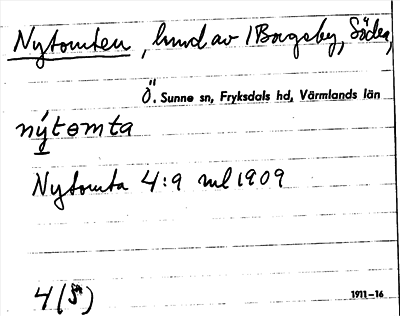 Nytomten, hmd av 1 Borgeby, Södra,
Ö. Sunne sn, Fryksdals hd, Värmlands län
nýtomta
Nytomta 4:9 ml 1909
4 (5)
1911–16